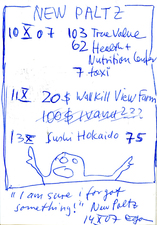 NEW PALTZ
10 X 07 103 True Value
62 Health +
Nutrition Center
7 taxi
11 X 20$ Wallkill View Farm
100$
13 X Sushi Hokaido 75
"I am sure i forgot
something!" New Paltz
14 X 07